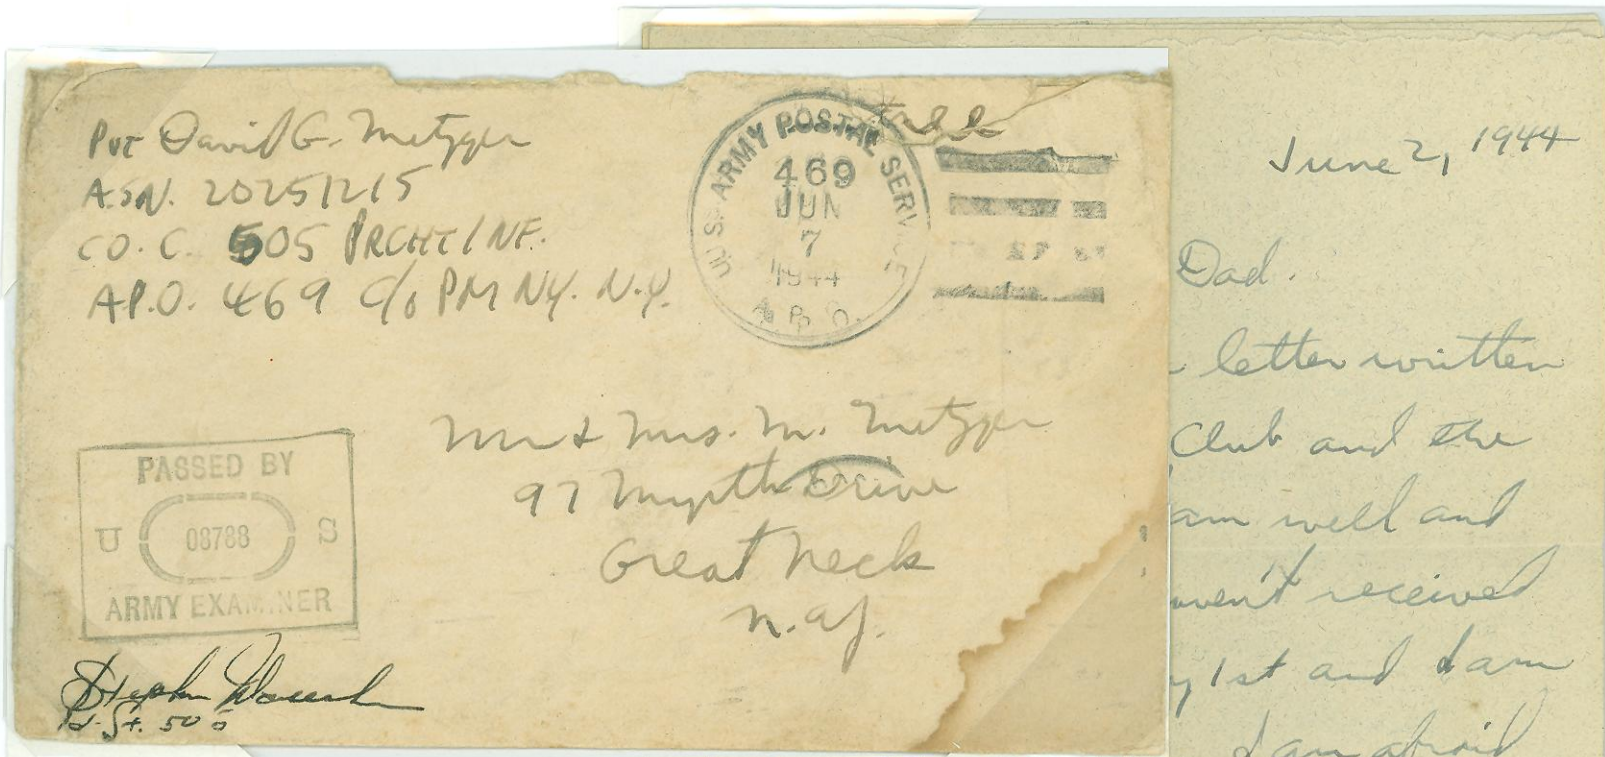 Pvt David G. Metzger
A.S.N. 20251215
CO. C. 505 PRCHT INF.
A.P.O. 469 C/o PM NY. N.Y.
Free
U.S. ARMY POSTAL SERVICE
469
JUN
7
1944
A.P.O.
Mr & Mrs. M. Metzger
97 Myrtle Drive
Great Neck
N.Y.
PASSED BY
U 08788 S
ARMY EXAMINER
Stephen
505
June 2, 1944
Dad.
letter written
Club and the
am well and
haven't received
1st and I am
I am afraid